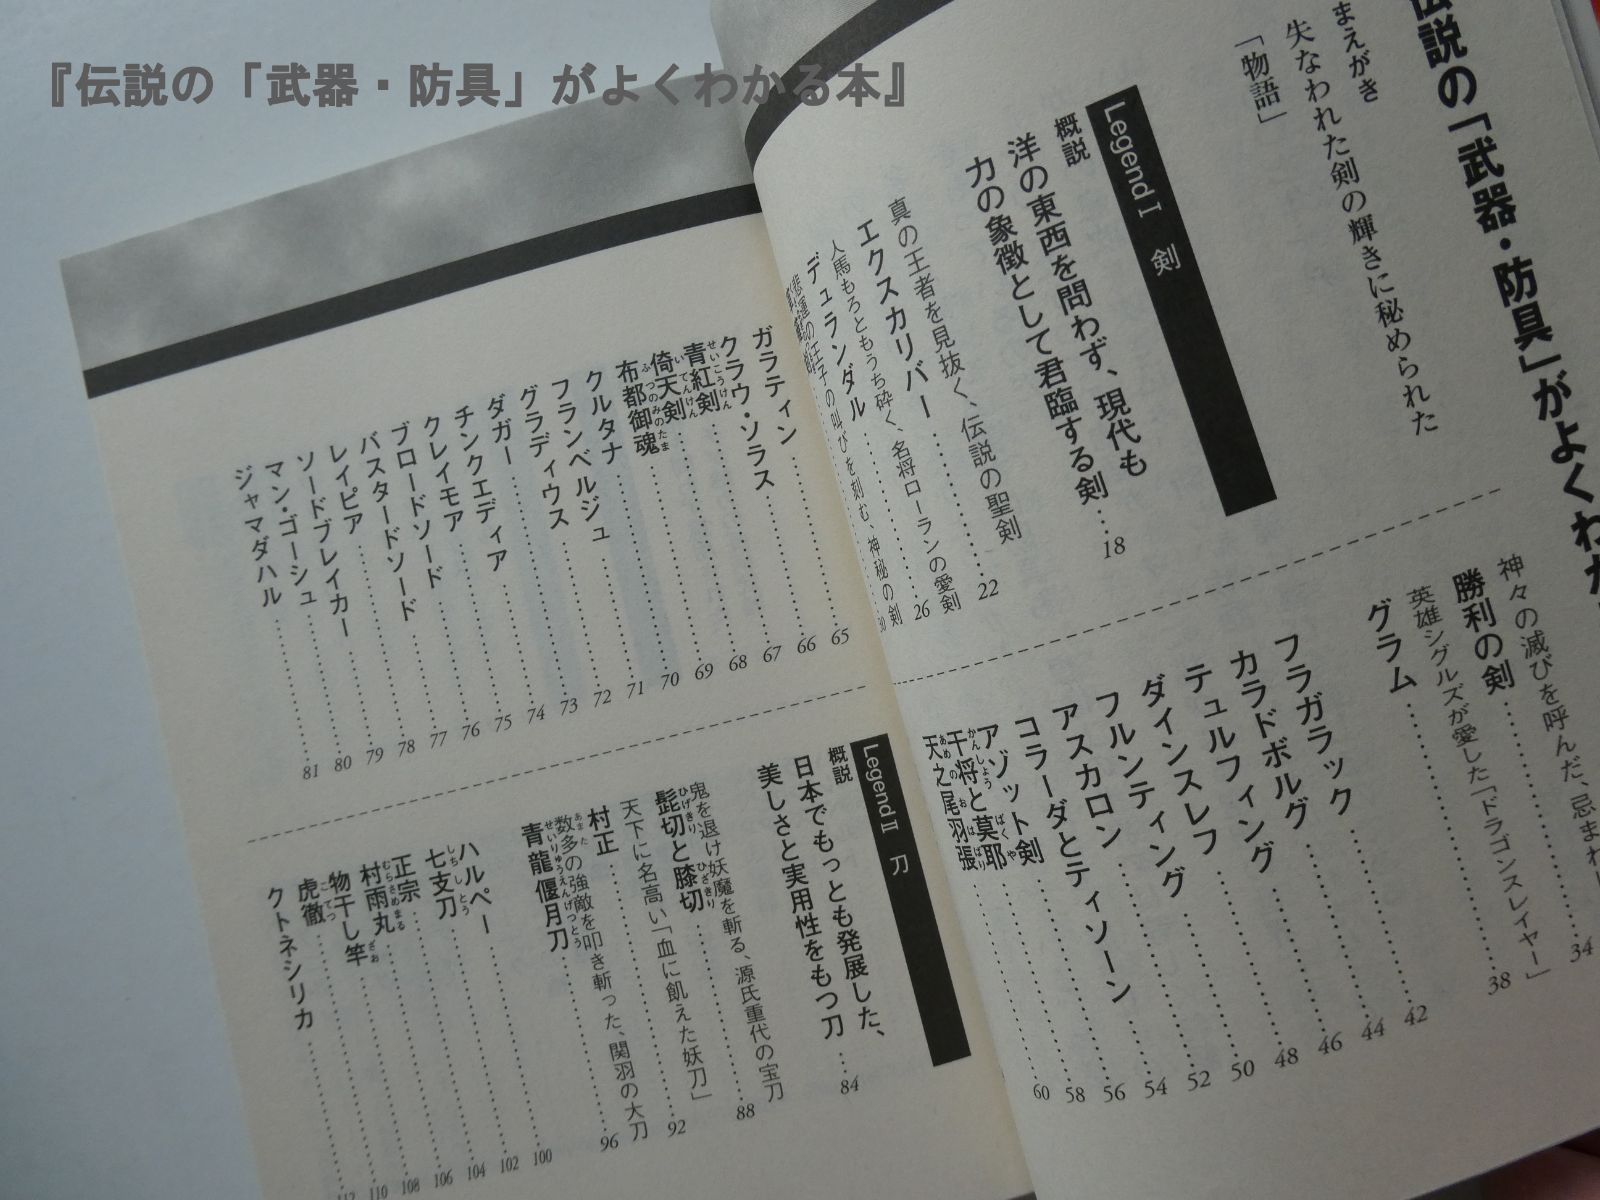 『伝説の「武器・防具」がよくわかる本』
伝説の「武器・防具」がよくわか
まえがき
失なわれた剣の輝きに秘められた
「物語」
Legend I 剣
概説
洋の東西を問わず、現代も
力の象徴として君臨する剣…18
真の王者を見抜く、伝説の聖剣
エクスカリバー……22
人馬もろともうち砕く、名将ローランの愛剣
デュランダル……26
悲運の王子の叫びを刻む、神秘の剣
30
神々の滅びを呼んだ、忌まわ
勝利の剣……34
英雄シグルズが愛した「ドラゴンスレイヤー」
グラム……38
フラガラック……42
カラドボルグ……44
テュルフィング……46
ダインスレフ……48
フルンティング……50
アスカロン……52
コラーダとティソーン……54
アゾット剣……56
干将と莫耶……58
かんしょう ばくや
天之尾羽張……60
あめのおはばり
ガラティン……65
クラウ・ソラス……66
青紅剣……67
せいこうけん
倚天剣……68
いてんけん
布都御魂……69
ふつのみのたま
クルタナ……70
フランベルジュ……71
グラディウス……72
ダガー……73
チンクエディア……74
クレイモア……75
ブロードソード……76
バスタードソード……77
レイピア……78
ソードブレイカー……79
マン・ゴーシュ……80
ジャマダハル……81
Legend II 刀
概説
日本でもっとも発展した、
美しさと実用性をもつ刀…84
鬼を退け妖魔を斬る、源氏重代の宝刀
髭切と膝切……88
ひげきり ひざきり
天下に名高い「血に飢えた妖刀」
村正……92
数多の強敵を叩き斬った、関羽の大刀
あまた
青龍偃月刀……96
せいりゅうえんげつとう
ハルペー……100
七支刀……102
しちしとう
正宗……104
村雨丸……106
むらさめまる
物干し竿……108
ざお
虎徹……110
こてつ
クトネシリカ……112